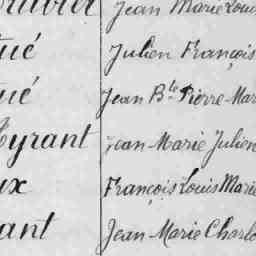 Jean Marie Loui
ué Julien François
ué Jean Bte Pierre Mar
yrant Jean-Marie Julien
ux François Louis Marie
ant Jean-Marie Charlo